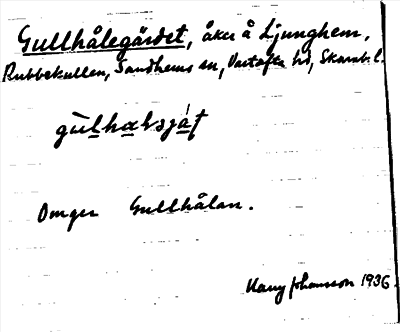 Gullhålegärdet, åker å Ljunghem,
Rubbekullen, Sandhems sn, Vartofta hd, Skarab. l.
Omger Gullhålan.
Harry Johansson 1936.